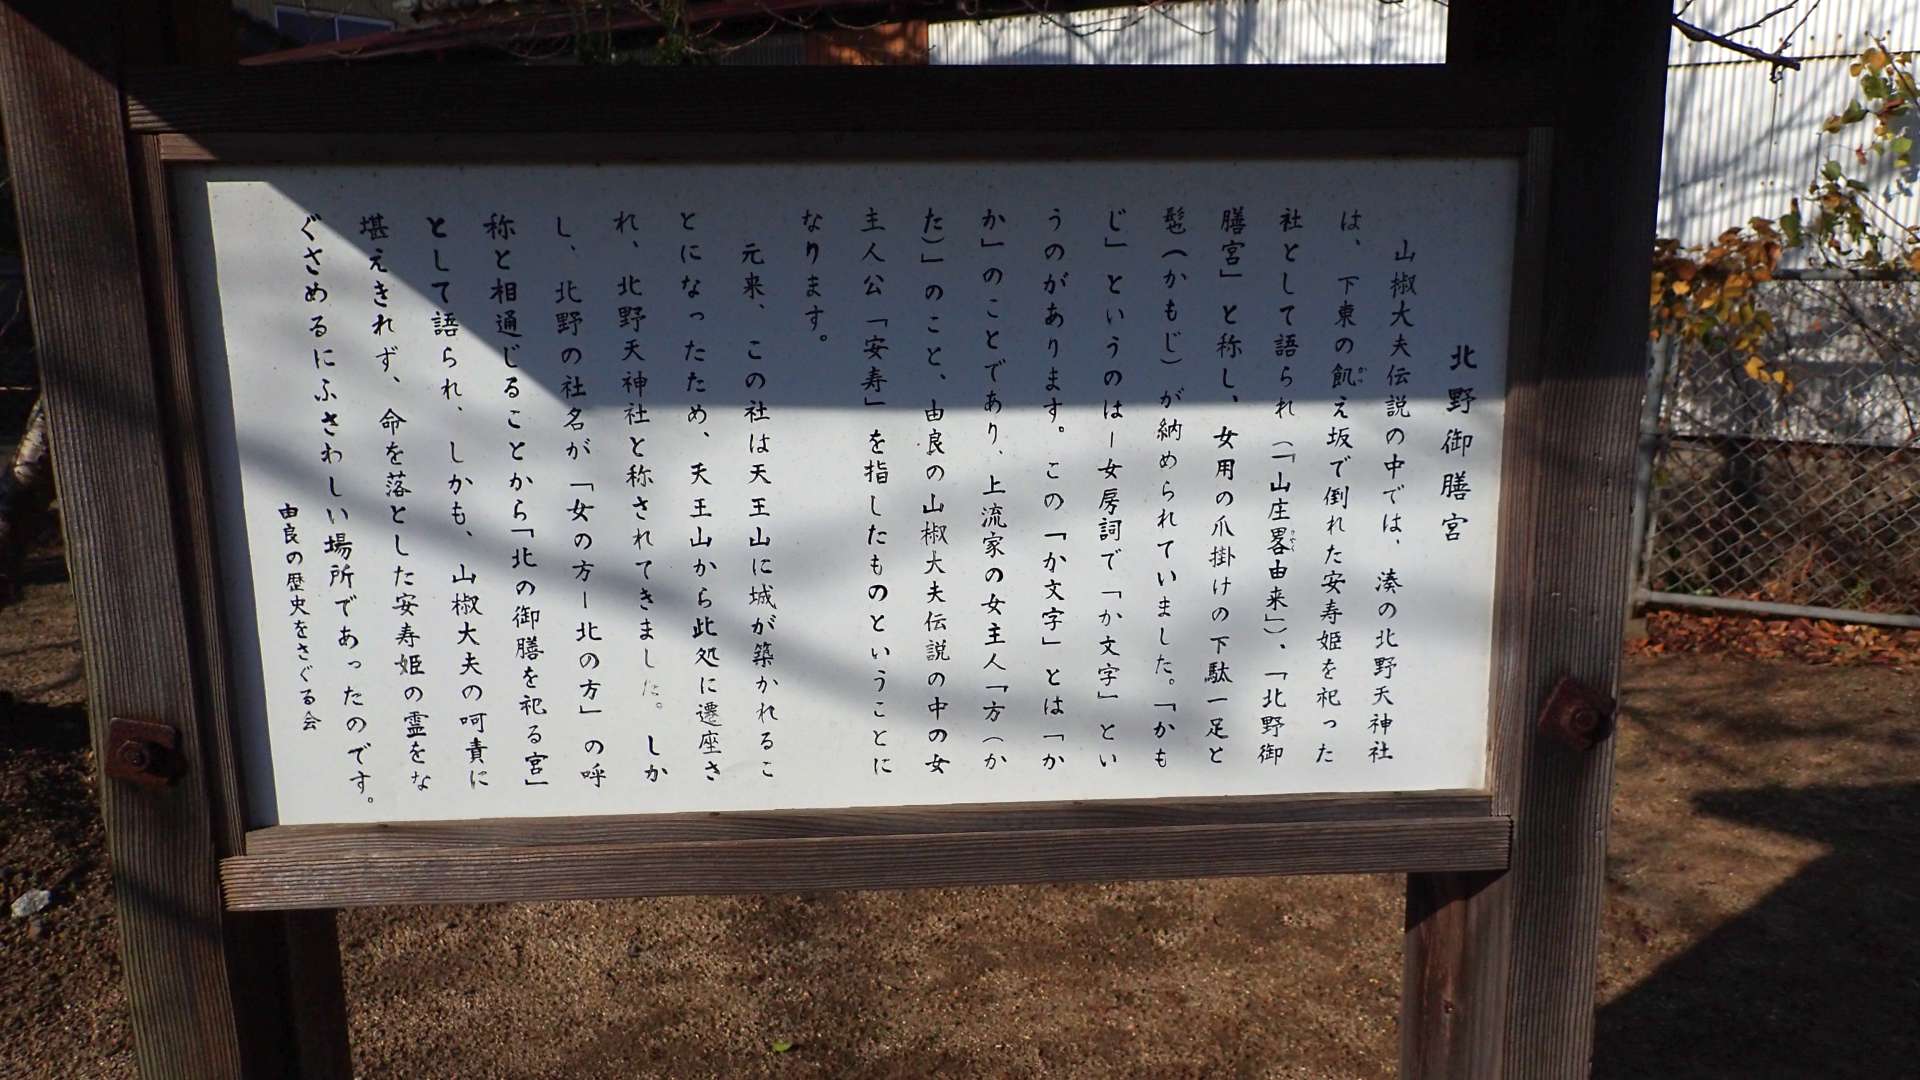 北野御膳宮
山椒大夫伝説の中では、湊の北野天神社
は、下東の飢え坂で倒れた安寿姫を祀った
社として語られ（「山庄畧由来」）、「北野御
膳宮」と称し、女用の爪掛けの下駄一足と
髢（かもじ）が納められていました。「かも
じ」というのは－女房詞で「か文字」とい
うのがあります。この「か文字」とは「か
か」のことであり、上流家の女主人「方（か
た）」のこと、由良の山椒大夫伝説の中の女
主人公「安寿」を指したものということに
なります。
元来、この社は天王山に城が築かれるこ
とになったため、天王山から此処に遷座さ
れ、北野天神社と称されてきました。しか
し、北野の社名が「女の方－北の方」の呼
称と相通じることから「北の御膳を祀る宮」
として語られ、しかも、山椒大夫の呵責に
堪えきれず、命を落とした安寿姫の霊をな
ぐさめるにふさわしい場所であったのです。
由良の歴史をさぐる会